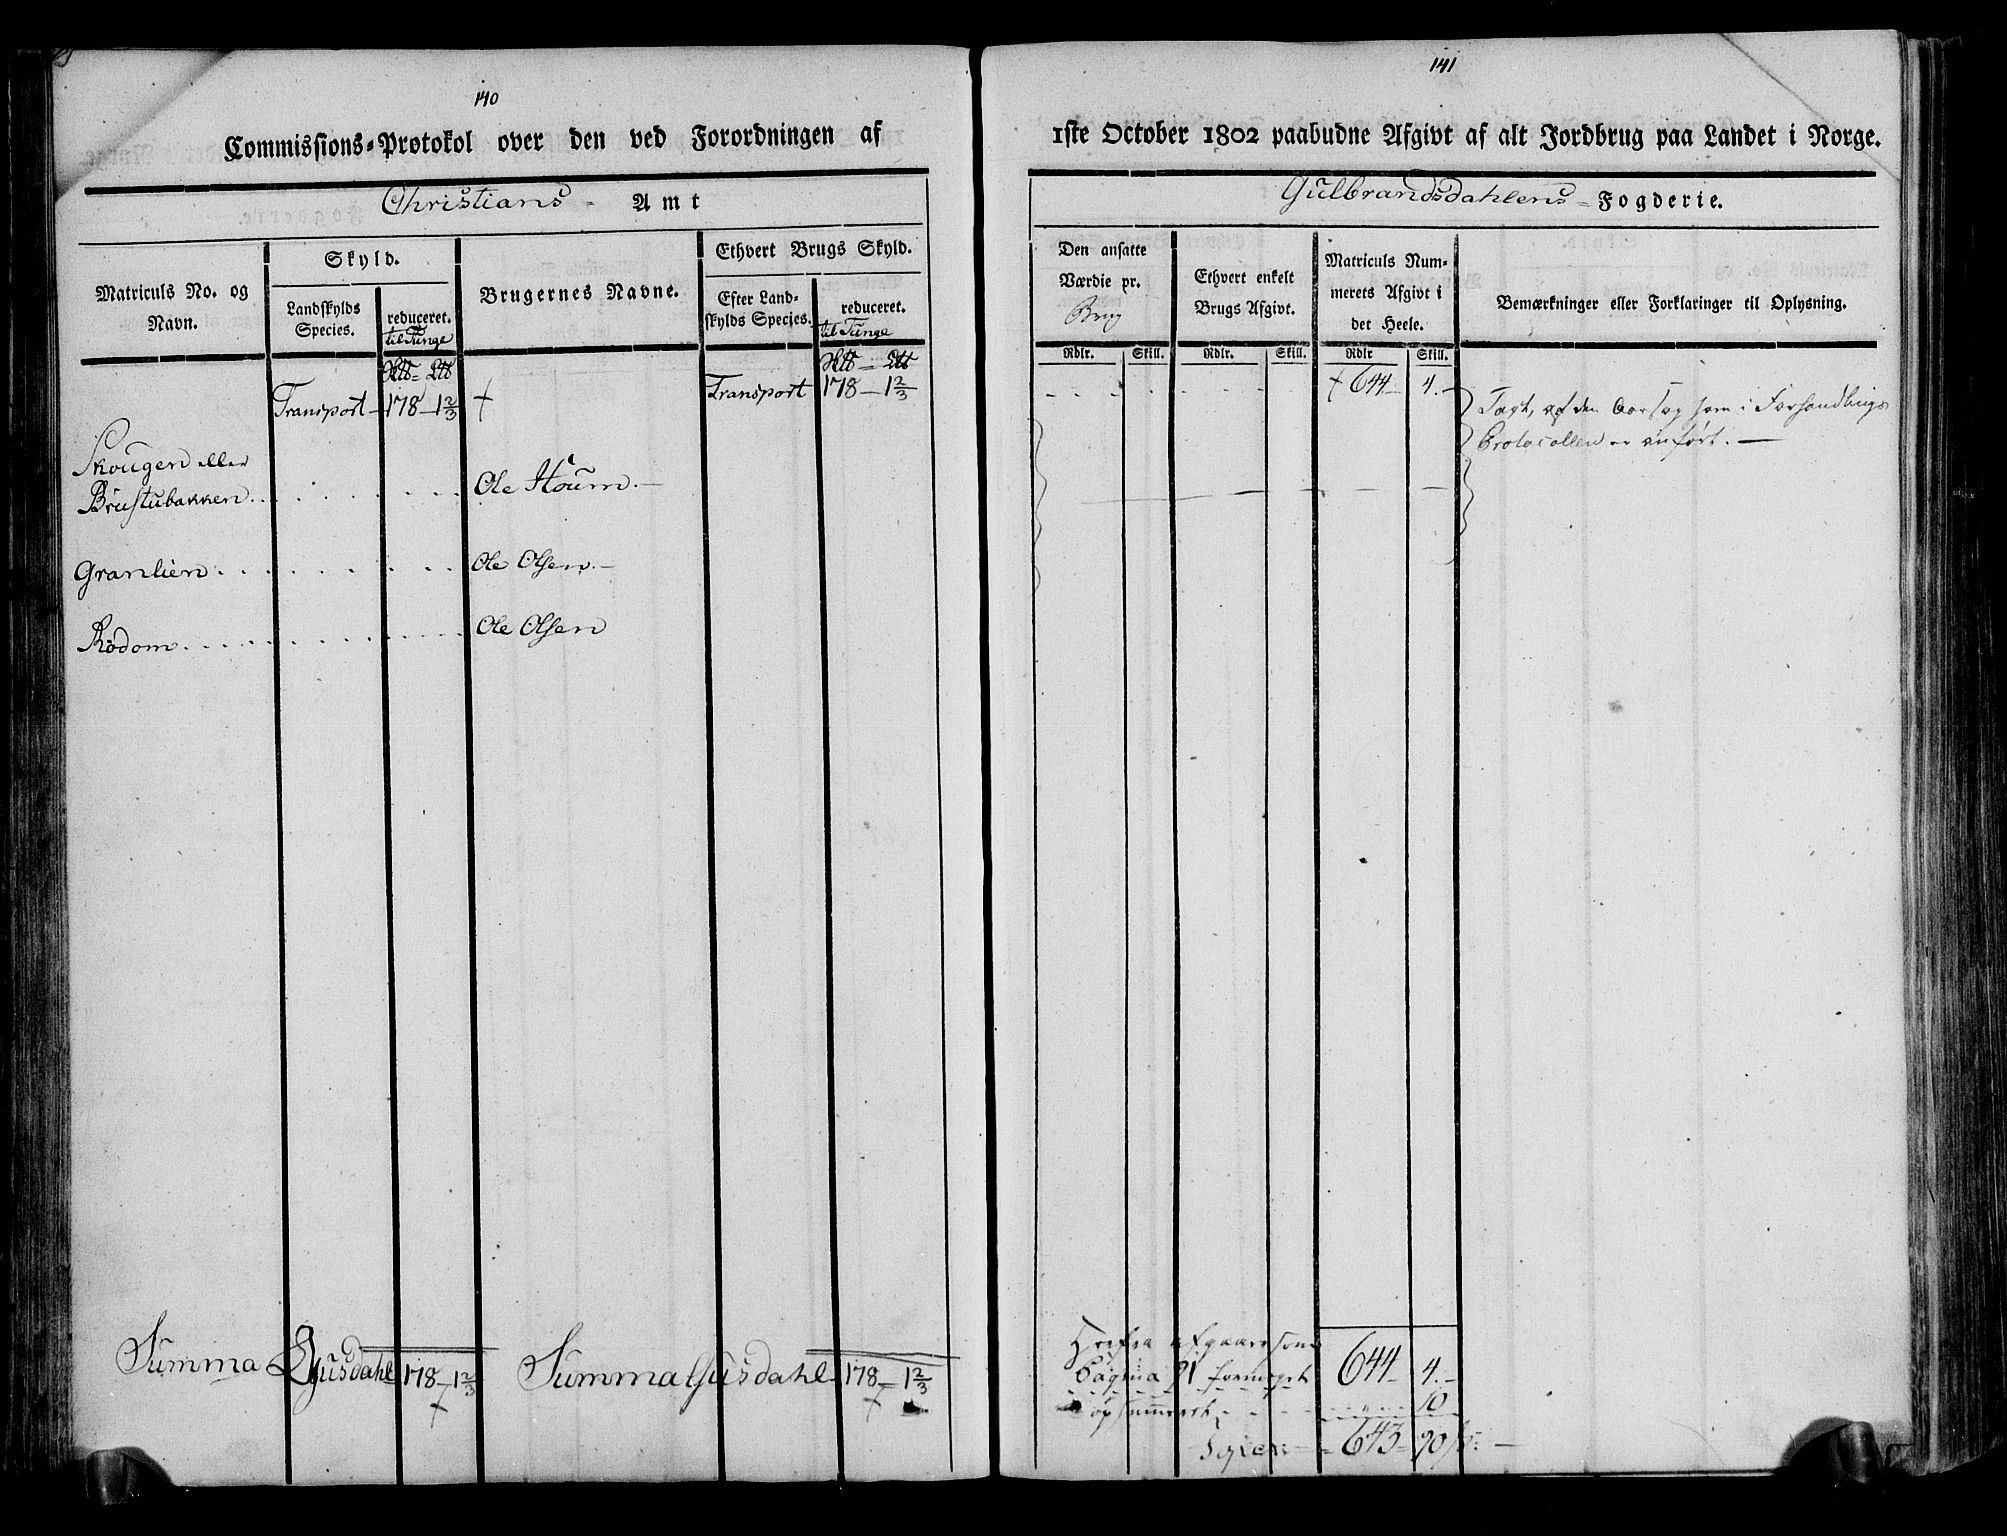 140
Commissions-Protokol over den ved Forordningen af
Christians Amt
Matriculs No. og Navn.
Skyld.
Landskylds Species.
reduceret.
til Tunge
Brugernes Navne.
Ethvert Brugs Skyld.
Efter Landskylds Species.
reduceret.
til Tunge
Transport 178 - 1 2/3
Transport 178 - 1 2/3
Skougen eller
Brustubakken Ole Houm
Granlien Ole Olsen
Rødom Ole Olsen
Summa Øusdahl 178 - 1 2/3
Summa Gusdahl 178 - 1 2/3
141
1ste October 1802 paabudne Afgivt af alt Jordbrug paa Landet i Norge.
Gulbrandsdahlens Fogderie.
Den ansatte Værdie pr.
Brug
Ethvert enkelt Brugs Afgivt.
Matriculs Nummerets Afgivt i det Heele.
Bemærkninger eller Forklaringer til Oplysning.
Rdlr. Skill. Rdlr. Skill. Rdlr Skill.
644 4.
af den Aarsag som i Forhandlings
Protocollen er anført.
Herfra afgaaer som
Pagina 644 4.
10
643 90